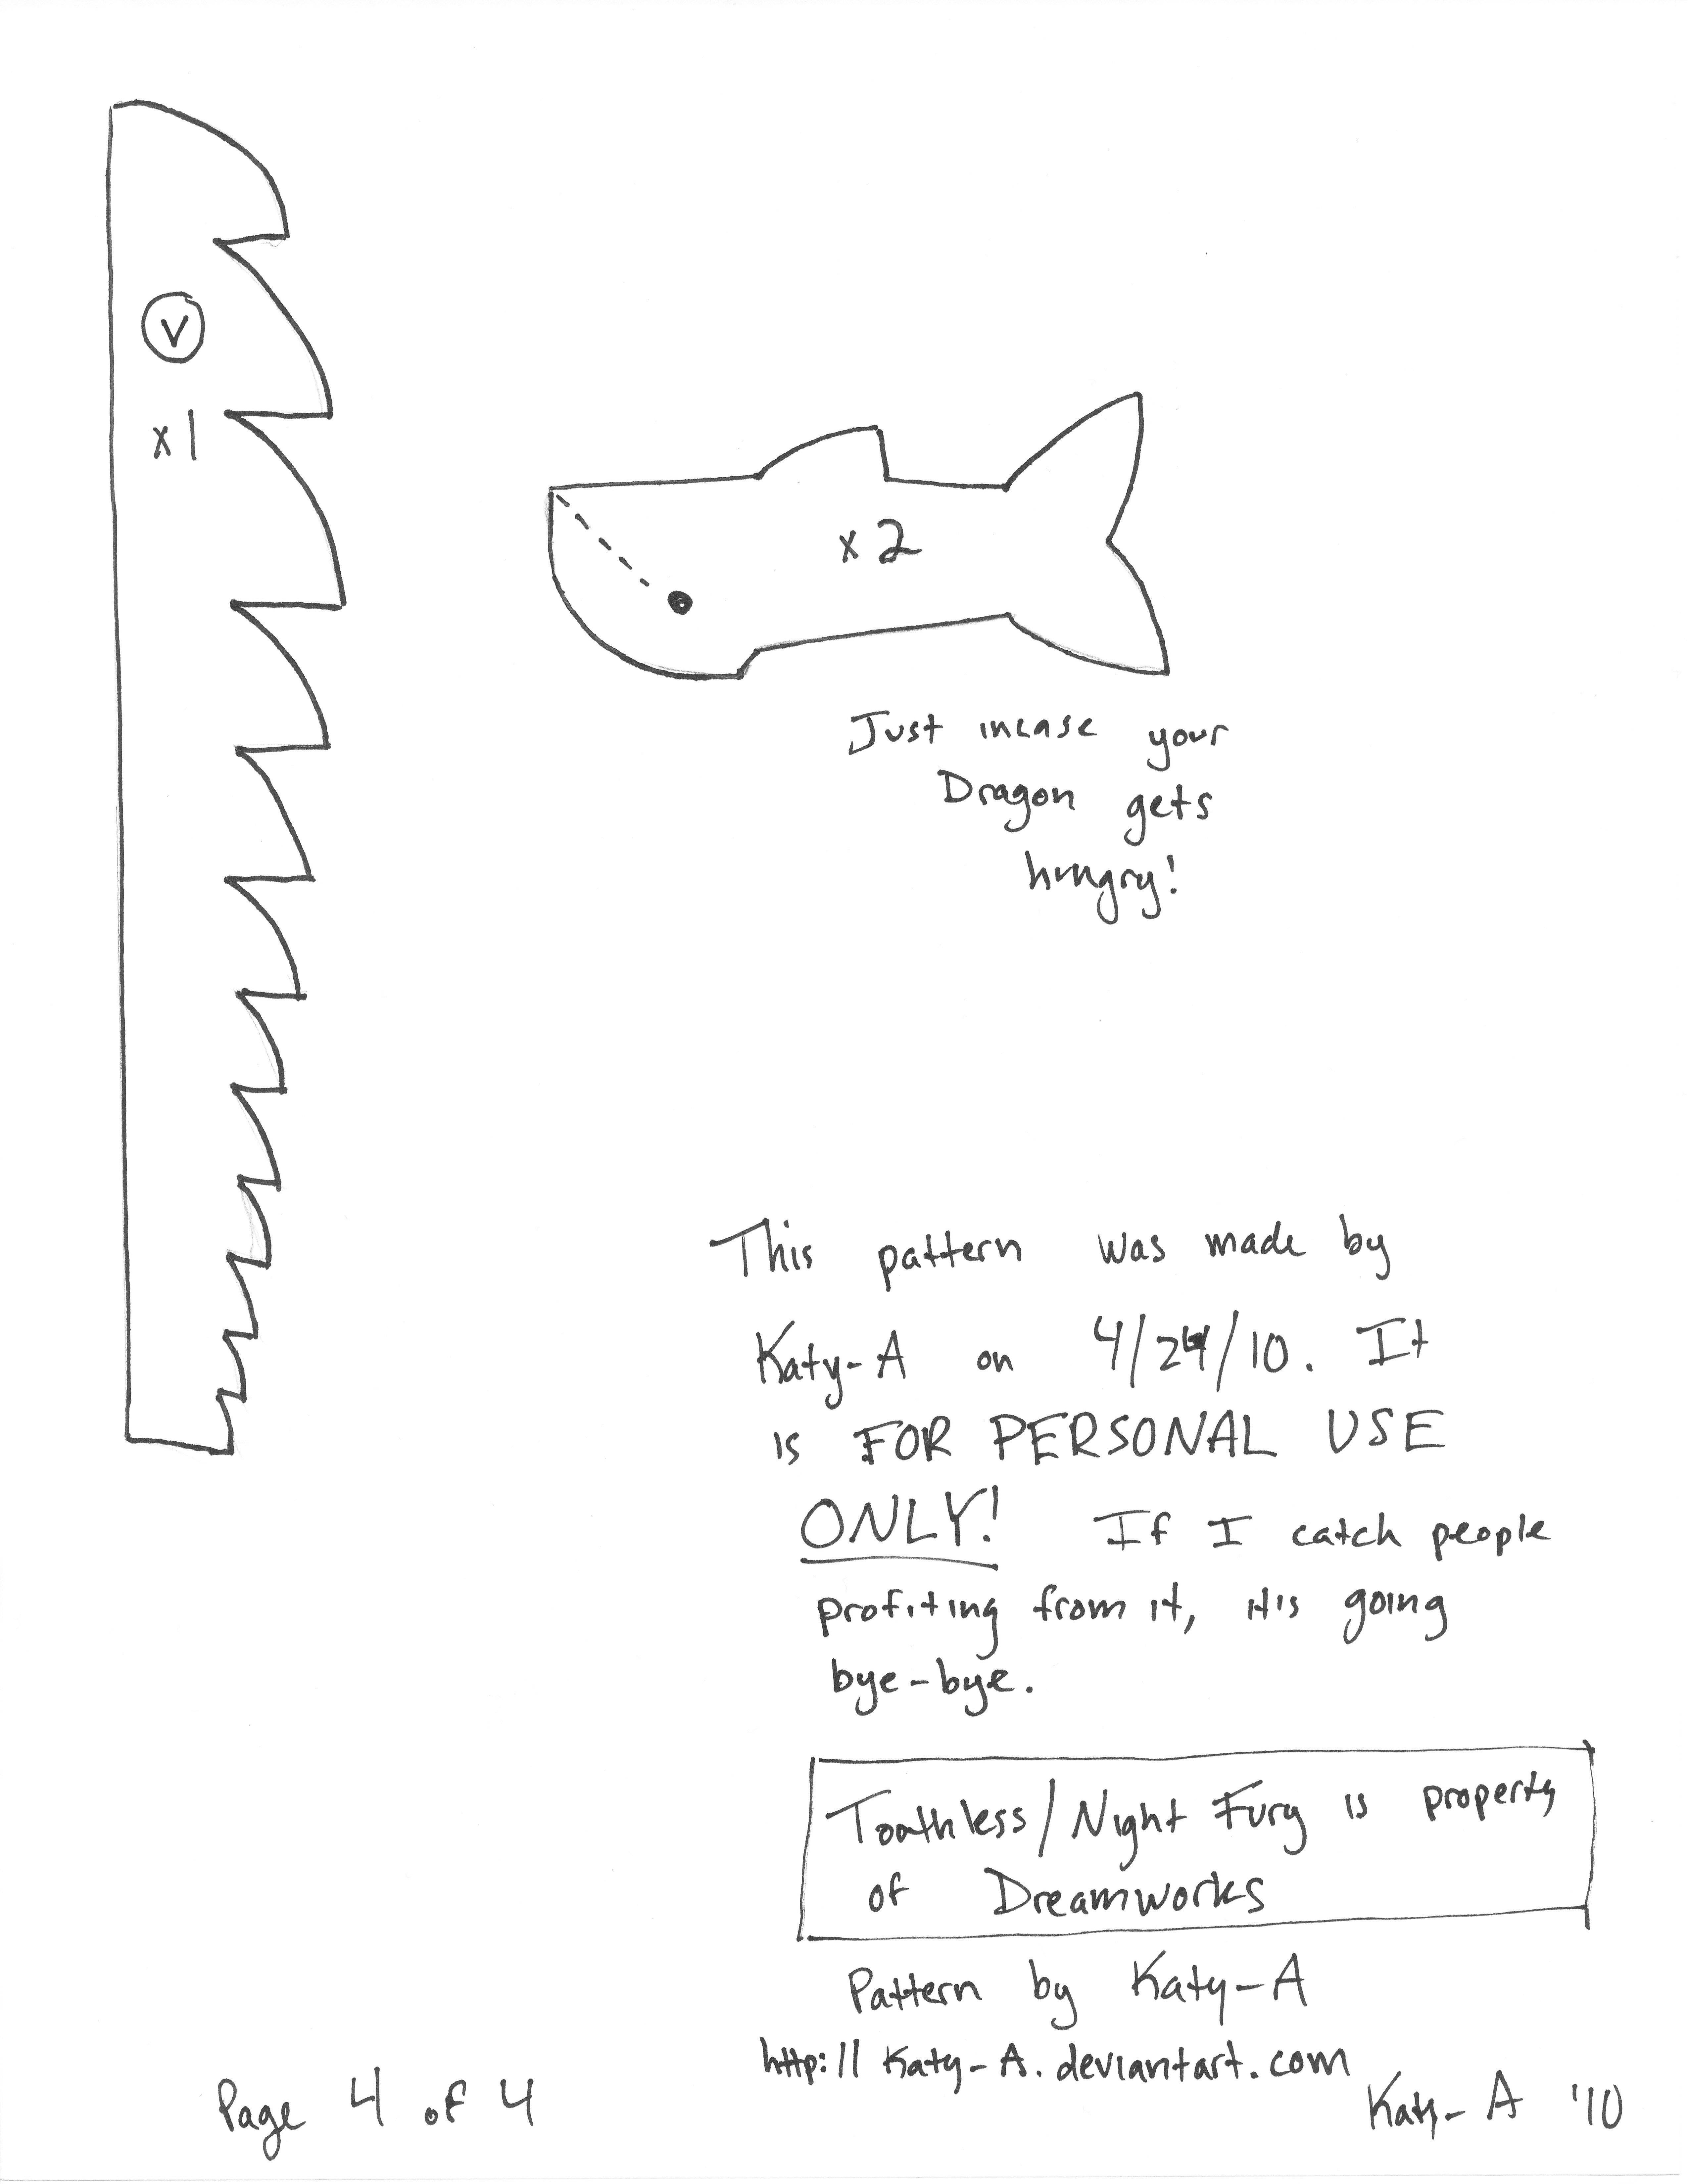 V
x1
x2
Just incase your
Dragon gets
hungry!
This pattern was made by
Katy-A on 4/24/10. It
is FOR PERSONAL USE
ONLY! If I catch people
profiting from it, it's going
bye-bye.
Toothless/Night Fury is property
of Dreamworks
Pattern by Katy-A
http://Katy-A.deviantart.com
Page 4 of 4
Katy-A '10